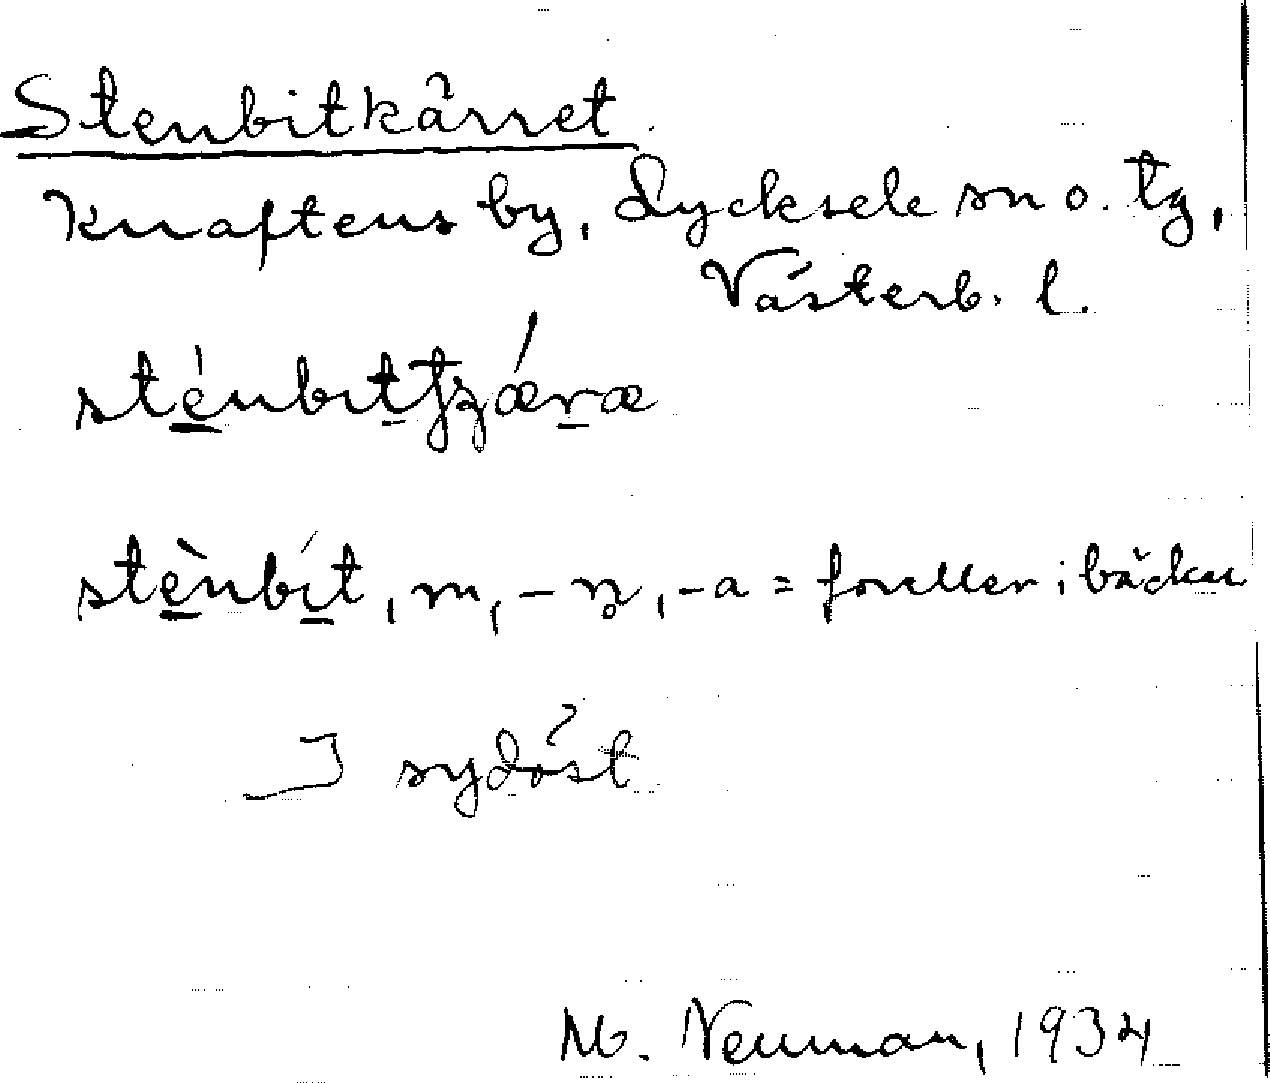 Stenbitkärret
Knaftens by, Lycksele sn o. tg,
Västerb. l.
sténbitʈʂǽræ
stènbít, m, -n̥, -a = foreller i bäcken
I sydöst
M. Neuman, 1934